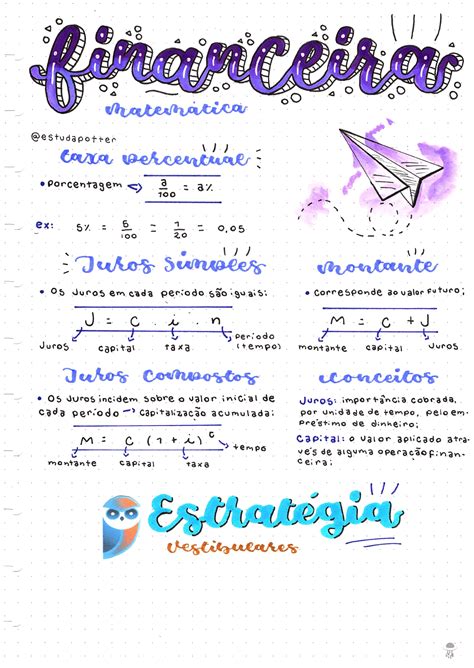 financeira
matemática
@estudapotter
taxa percentual
• Porcentagem → a/100 = a%
ex: 5% = 5/100 = 1/20 = 0,05
Juros Simples
• Os Juros em cada período são iguais:
J = C . i . n
Juros capital taxa período (tempo)
montante
• corresponde ao valor futuro:
M = C + J
montante capital Juros
Juros Compostos
• Os Juros incidem sobre o valor inicial de
cada período → capitalização acumulada:
M = C (1 + i)
tempo
montante capital taxa
Conceitos
Juros: importância cobrada,
por unidade de tempo, pelo em-
préstimo de dinheiro;
Capital: o valor aplicado atra-
vés de alguma operação finan-
ceira;
Estratégia
Vestibulares